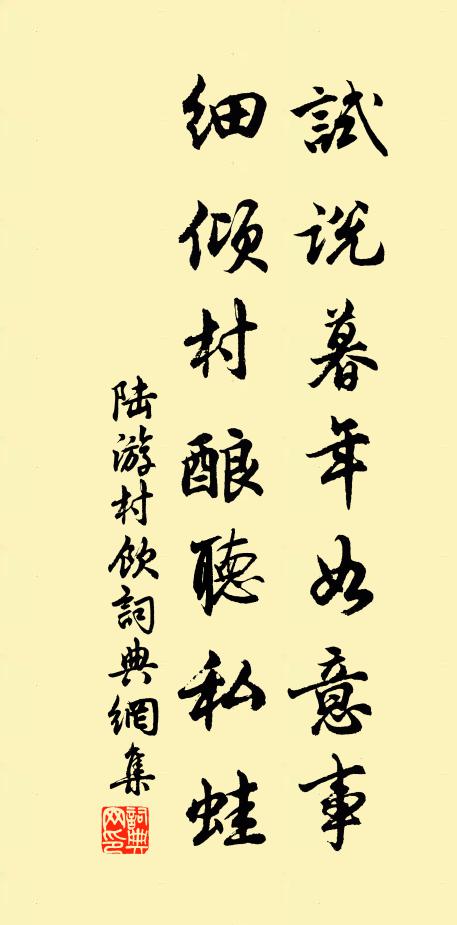 試説暮年如意事
细倾村酿聽私蛙
陆游村飲詞典網集
詞典网印